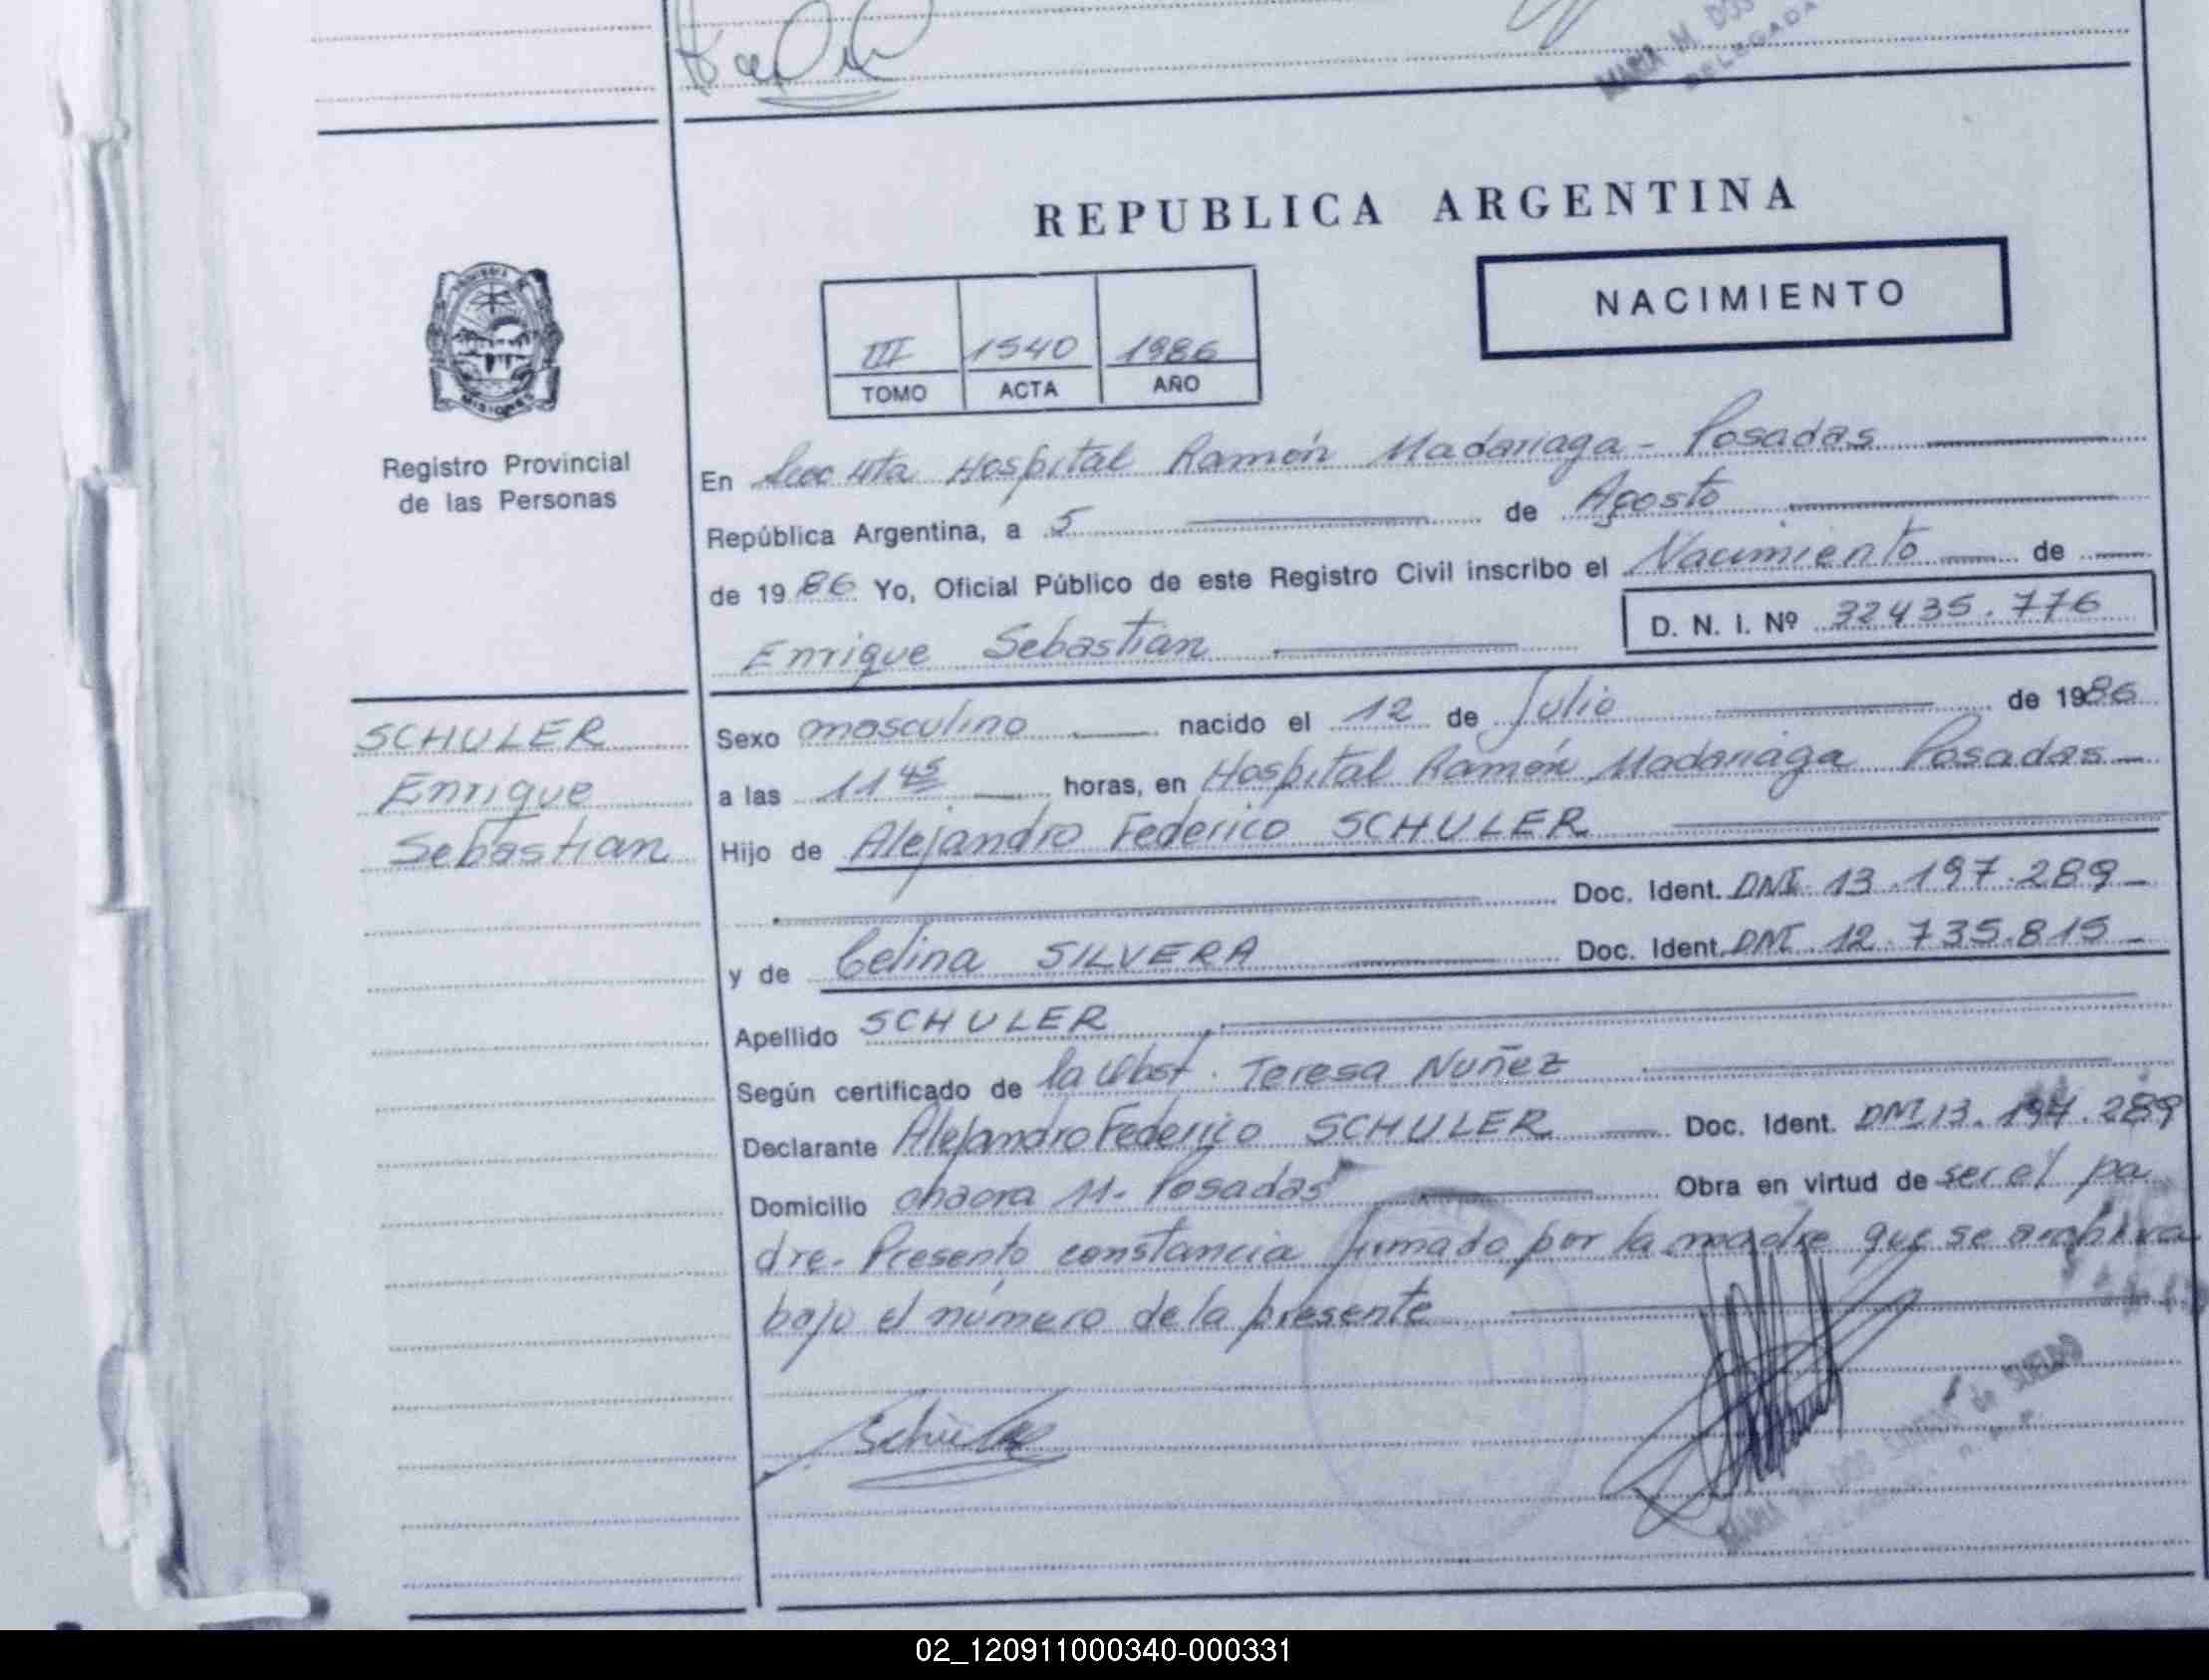 MARIA M. DOS
DELEGADA
REPUBLICA ARGENTINA
NACIMIENTO
III 1540 1986
TOMO ACTA AÑO
MISIONES
Registro Provincial
de las Personas
En Secc 4ta Hospital Ramón Madariaga - Posadas
República Argentina, a 5 de Agosto
de 1986 Yo, Oficial Público de este Registro Civil inscribo el Nacimiento de
Enrique Sebastian D. N. I. Nº 32435.776
SCHULER
Enrique
Sebastian
Sexo masculino nacido el 12 de Julio de 1986
a las 11 45 horas, en Hospital Ramón Madariaga Posadas
Hijo de Alejandro Federico SCHULER
Doc. Ident. DNI 13.197.289
y de Celina SILVERA Doc. Ident. DNI 12.735.815
Apellido SCHULER
Según certificado de la Obst. Teresa Nuñez
Declarante Alejandro Federico SCHULER Doc. Ident. DNI 13.197.289
Domicilio chacra 11. Posadas Obra en virtud de ser el pa
dre. Presento constancia firmado por la madre que se archiva
bajo el número de la presente
Schüler
MARIA M. DOS SANTOS de SUELDO
02_120911000340-000331